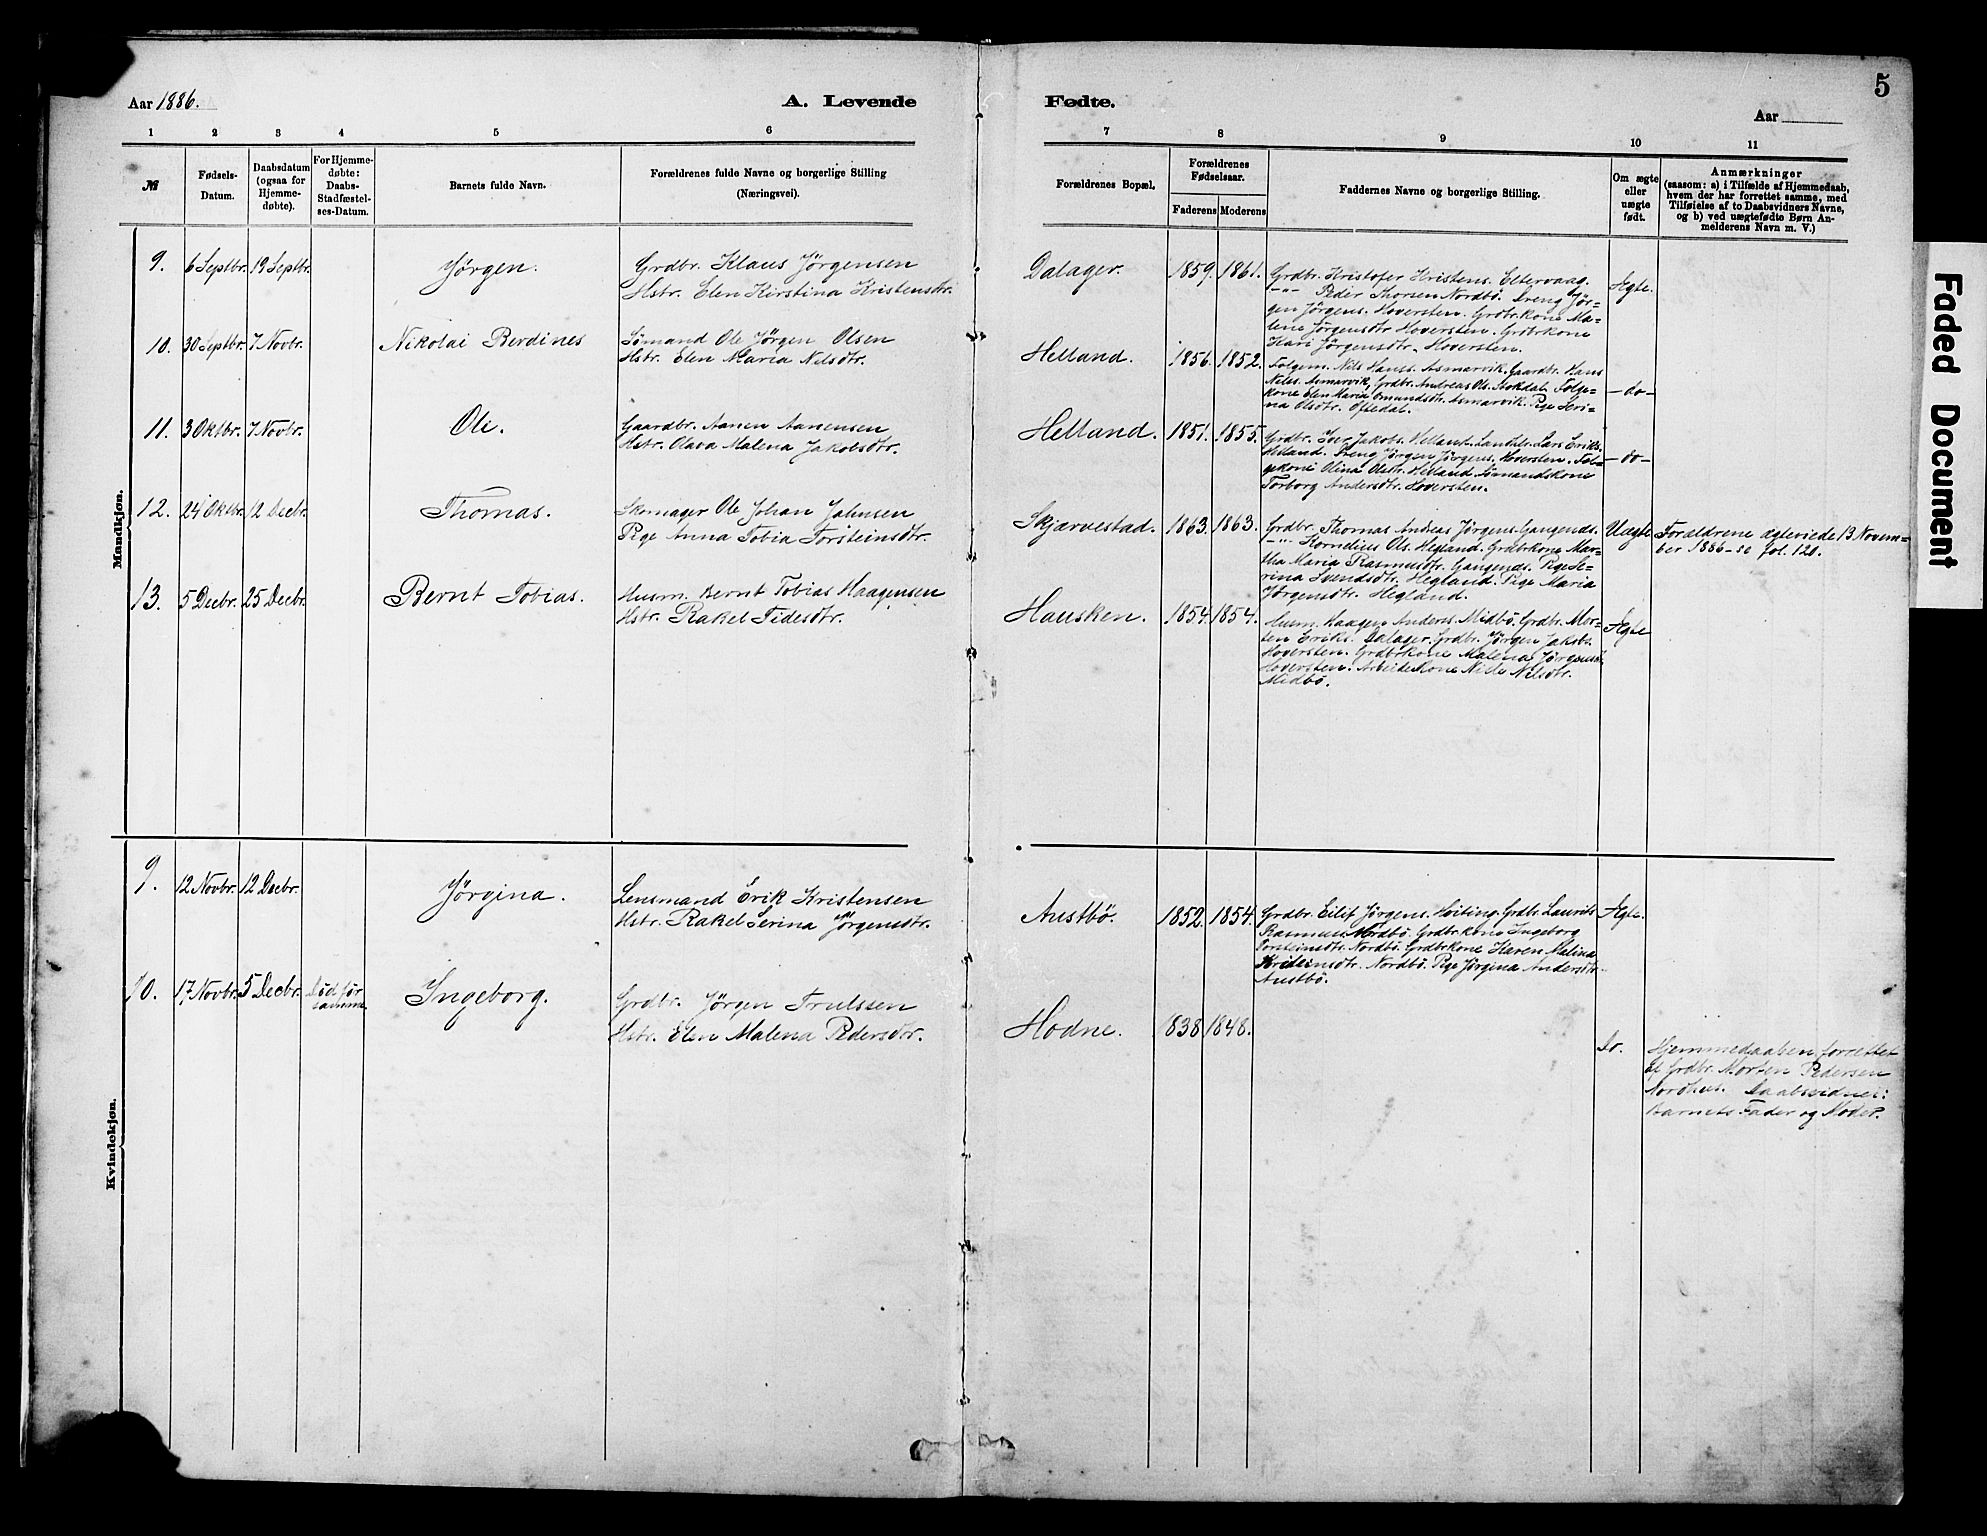 5
Aar 1886.
A. Levende
Fødte.
Aar
1 2 3 4 5 6 7 8 9 10 11
№
Fødsels-
Datum.
Daabsdatum
(ogsaa for
Hjemme-
døbte).
For Hjemme-
døbte:
Daabs-
Stadfæstel-
ses-Datum.
Barnets fulde Navn.
Forældrenes fulde Navne og borgerlige Stilling
(Næringsvei).
Forældrenes Bopæl.
Forældrenes
Fødselsaar.
Faderens Moderens
Faddernes Navne og borgerlige Stilling.
Om ægte
eller
uægte
født.
Anmærkninger
(saasom: a) i Tilfælde af Hjemmedaab,
hvem der har forrettet samme, med
Tilføielse af to Daabsvidners Navne,
og b) ved uægtefødte Børn An-
melderens Navn m. V.)
Mandkjøn.
9. 6 Septbr. 19 Septbr. Jørgen.
Grdbr. Klaus Jørgensen
Hstr. Elen Kirstina Kristensdtr.
Dalager. 1859. 1861.
Grdbr. Kristofer Kristens. Eltervaag.
-"- Peder Thorsen Nordbö. Dreng Jør-
gen Jørgens. Hoversten. Grdbrkone Ma-
lene Jørgensdtr Hoversten. Grdbrkone
Kari Jørgensdtr. Hoversten.
Ægte.
10. 30 Septbr. 7 Novbr. Nikolai Berdines
Sömand Ole Jørgen Olsen
Hstr. Elen Maria Nilsdtr.
Helland. 1856. 1852.
Folgem. Nils Hanss. Asmarvik. Gaardbr. Hans
Nilss. Asmarvik, Grdbr. Andreas Ols. Stokdal. Folge-
kone Elen Maria Omundsdtr. Asmarvik. Pige Seri-
na Olsdtr. Oftedal.
-do-
11. 3 Oktbr. 7 Novbr. Ole.
Gaardbr. Aanen Aanensen
Hstr. Olava Malena Jakobsdtr.
Helland. 1851. 1855.
Grdbr. Iver Jakobs. Helland. Lars Eriks.
Helland. Dreng Jørgen Jørgens. Hoversten. Fol-
gekone Olina Olsdtr. Helland. Sømandskone
Torborg Andersdtr. Hoversten.
-do-
12. 24 Oktbr. 12 Decbr. Thomas.
Skomager Ole Johan Johnsen
Pige Anna Tobia Torsteinsdtr.
Skjærvestad. 1863. 1863.
Grdbr. Thomas Andreas Jørgens. Gangends.
-"- Kornelius Ols. Hegland. Grdbrkone Mar-
tha Maria Rasmusdtr. Gangends. Pige Se-
rina Svendsdtr. Hegland. Pige Maria
Jørgensdtr. Hegland.
Uægte
Forældrene ægteviede 13 Novem-
ber 1886 - se fol. 120.
13. 5 Decbr. 25 Decbr. Bernt Tobias.
Husm. Bernt Tobias Haagensen
Hstr. Rakel Tidesdtr.
Hausken. 1854. 1854.
Husm. Haagen Anders. Midbö. Grdbr. Mor-
ten Eriks. Dalager. Grdbr. Jørgen Jakobs.
Hoversten. Grdbrkone Malena Jørgensd.
Hoversten. Arbeiderkone Nilsdtr.
Midbö.
Ægte
Kvindekjøn.
9. 12 Novbr. 12 Decbr. Jørgina.
Lensmand Erik Kristensen
Hstr. Rakel Serina Jørgensdtr.
Austbö. 1852. 1854.
Grdbr. Eilif Jørgens. Höiting. Grdbr. Laurits
Rasmus. Nordbö. Grdbrkone Ingeborg
Torsteinsdtr. Nordbö. Grdbrkone Karen Malina
Nordbö. Pige Jørgina Andersdtr.
Austbö.
Ægte.
10. 17 Novbr. 5 Decbr. Död før
samme. Ingeborg.
Grdbr. Jørgen Trulssen
Hstr. Elen Malena Pedersdtr.
Hodne. 1838 1848.
Do.
Hjemmedaaben forrettet
af Grdbr. Morten Pedersen
Nordhus. Daabsvidner:
Barnets Fader og Moder.
Faded Document